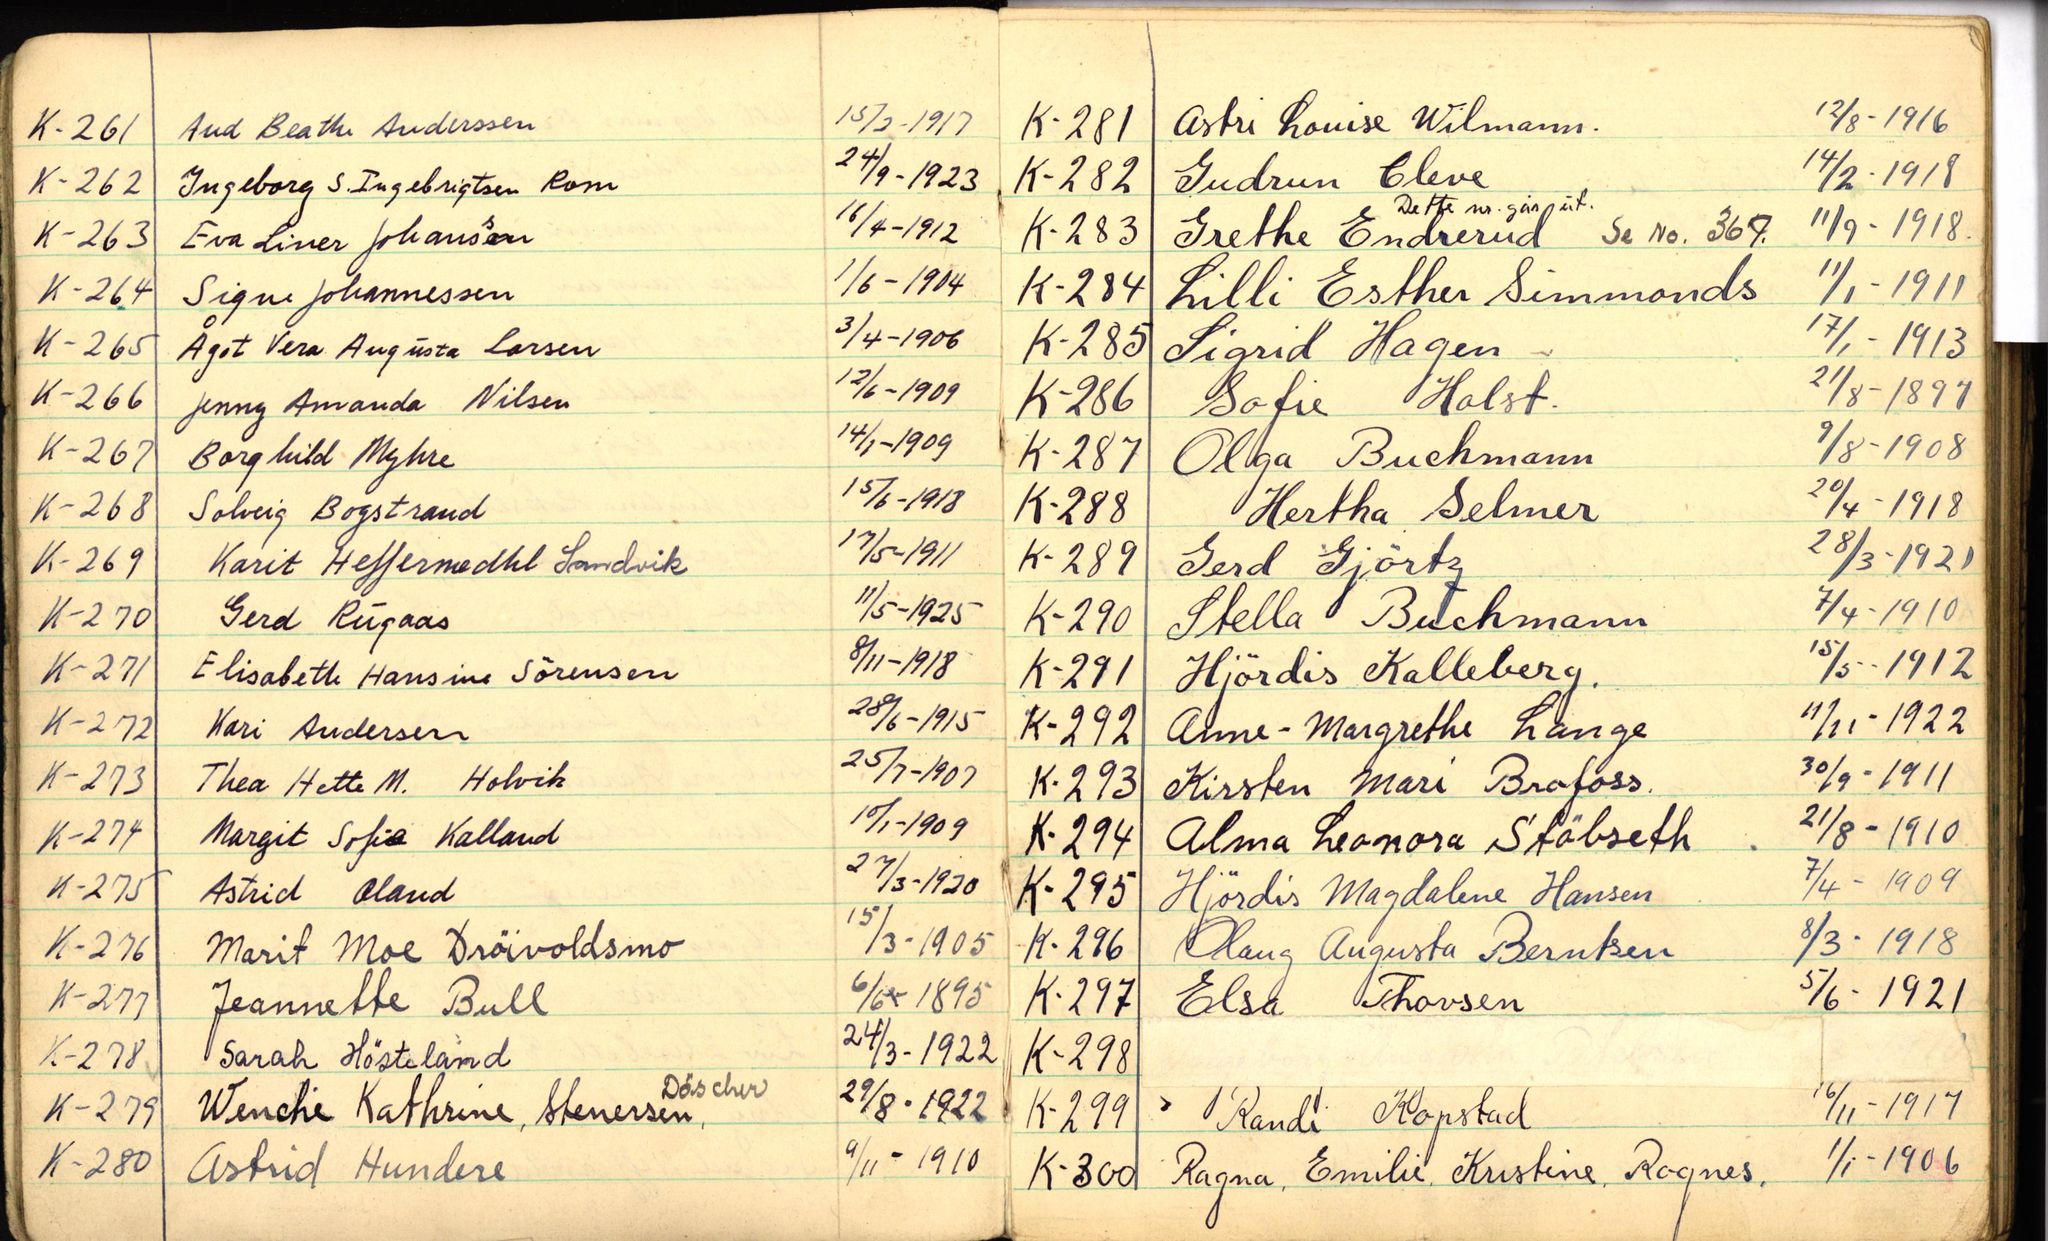 K-261 Aud Beathe Anderssen 15/2-1917
K-262 Ingeborg S. Ingebrigtsen Rom 24/9-1923
K-263 Eva Liner Johansen 16/4-1912
K-264 Signe Johannessen 1/6-1904
K-265 Ågot Vera Augusta Larsen 3/4-1906
K-266 Jenny Amanda Nilsen 12/6-1909
K-267 Borghild Myhre 14/1-1909
K-268 Solveig Bogstrand 15/6-1918
K-269 Karit Heffermedhl Sandvik 17/5-1911
K-270 Gerd Rugaas 11/5-1925
K-271 Elisabeth Hansine Sörensen 8/11-1918
K-272 Kari Andersen 28/6-1915
K-273 Thea Hette M. Holvik 25/7-1907
K-274 Margit Sofie Kalland 10/1-1909
K-275 Astrid Oland 27/3-1920
K-276 Marit Moe Dröivoldsmo 15/3-1905
K-277 Jeannette Bull 6/6-1895
K-278 Sarah Hösteland 24/3-1922
Döscher
K-279 Wenche Kathrine, Stenersen, 29/8-1922
K-280 Astrid Hundere 9/11-1910
K-281 Astri Louise Wilmann. 12/8-1916
K-282 Gudrun Cleve 14/2-1918
Dette nr. går ut.
K-283 Grethe Endrerud Se No. 367. 11/9-1918.
K-284 Lilli Esther Simmonds 11/1-1911
K-285 Sigrid Hagen 17/1-1913
K-286 Sofie Holst. 21/8-1897
K-287 Olga Buchmann 9/8-1908
K-288 Hertha Selmer 20/4-1918
K-289 Gerd Gjörtz 28/3-1921
K-290 Stella Buchmann 7/4-1910
K-291 Hjördis Kalleberg. 15/5-1912
K-292 Anne-Margrethe Lange 11/11-1922
K-293 Kirsten Mari Brofoss. 30/9-1911
K-294 Alma Leonora Stöbseth. 21/8-1910
K-295 Hjördis Magdalene Hansen 7/4-1909
K-296 Olaug Augusta Berntsen 8/3-1918
K-297 Elsa Thorsen 5/6-1921
K-298
K-299 Randi Kopstad 16/11-1917
K-300 Ragna, Emilie, Kristine, Rognes. 1/1-1906